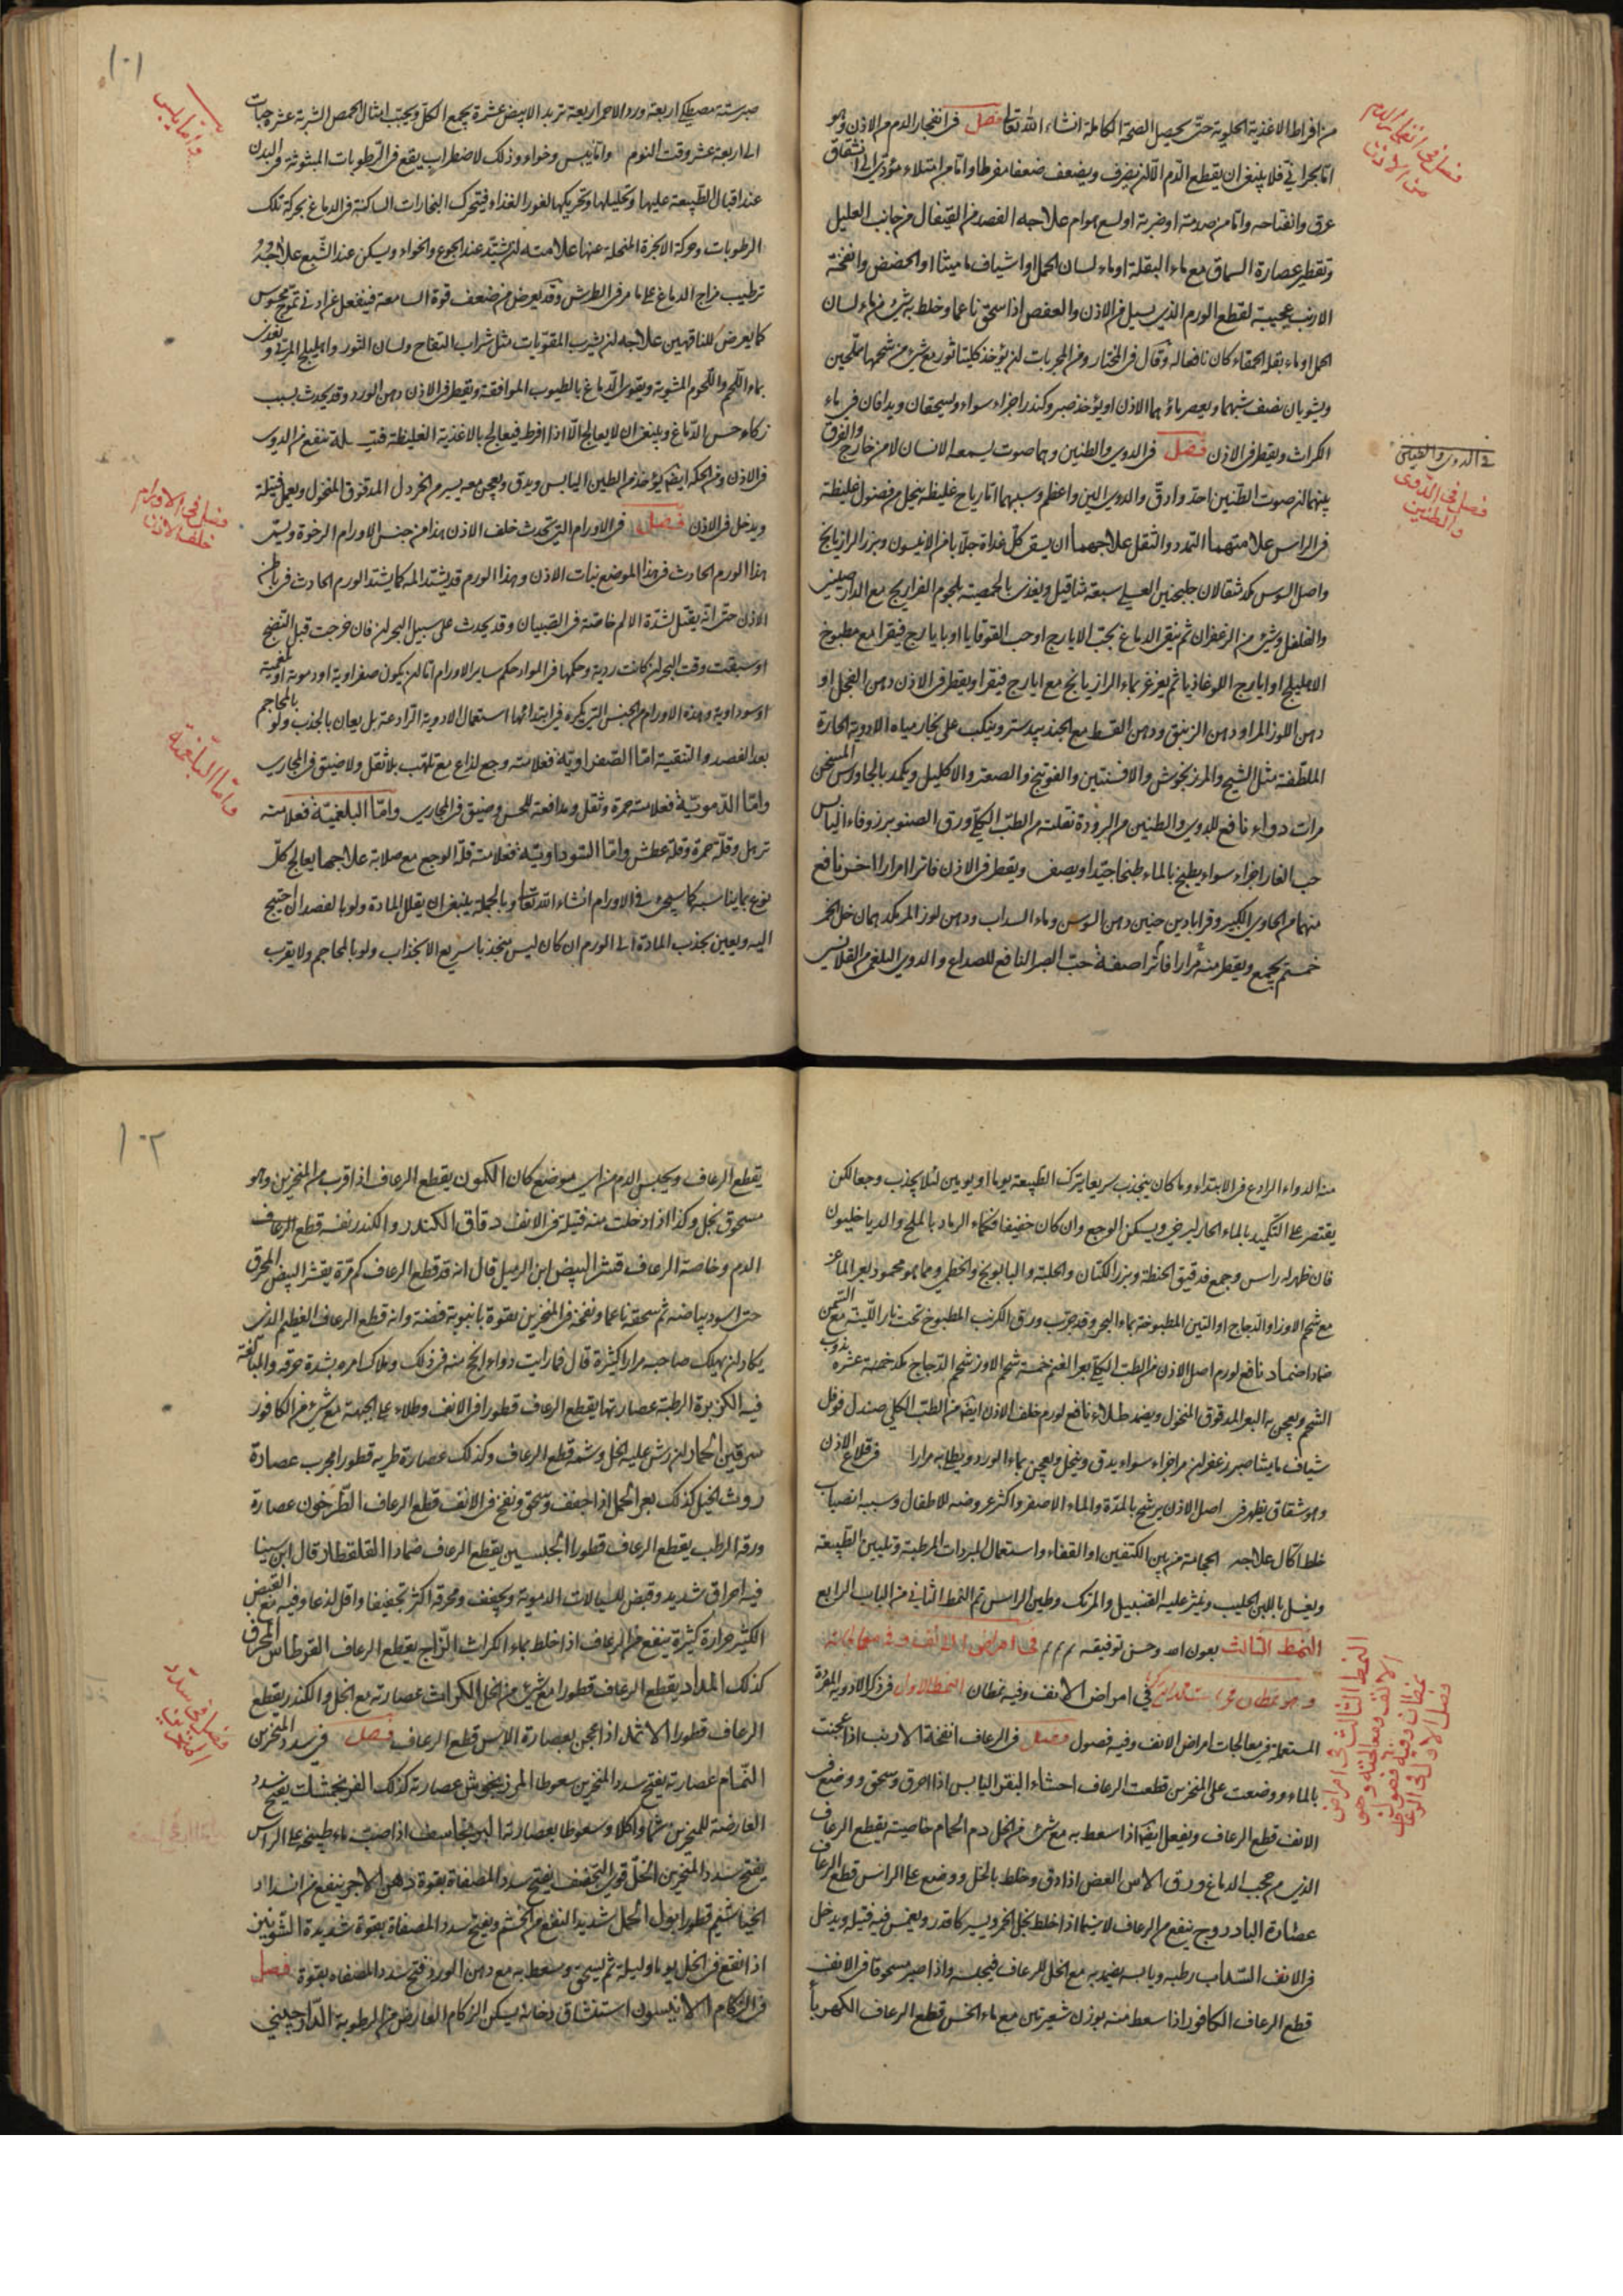 من افراط الاغذية الحلوية حتى يحصل الصحة الكاملة انشاء الله تعالى فصل فى انفجار الدم من الاذن وهو
اما بحرانى فلا ينبغى ان يقطع الدم الا ان يضرف ويضعف ضعفا مفرطا واما من امتلاء مؤدى الى انشقاق
عرق وانفتاحه واما من صدمة او ضربة او لسع هوام علاجه الفصد من القيفال من جانب العليل
وتقطير عصارة السماق مع ماء البقلة او ماء لسان الحمل او اشياف ماميثا او الحضض وانفحة
الارنب عجيبة لقطع الورم الذى يسيل من الاذن والعفص اذا سحق ناعما وخلط بشئ من ماء لسان
الحمل او ماء بقلة الحمقاء كان نافعا له وقال فى المختار ومن المجربات ان يؤخذ كليتا ثور مع شئ من شحمها مملحين
ويشويان نصف شيهما ويعصر ماؤهما الاذن او يؤخذ صبر وكندر اجزاء سواء ويسحقان ويدافان فى ماء
الكراث ويقطر فى الاذن فصل فى الدوى والطنين وهما صوت يسمعه الانسان لا من خارج والفرق
بينهما ان صوت الطنين احد وادق والدوى الين واعظم وسببهما اما رياح غليظة ينحل من فضول غليظة
فى الراس علامتهما التمدد والثقل علاجهما ان يسقى كل غداة جلابا من الانيسون وبزر الرازيانج
واصل السوس مكد مثقالان جلنجبين العسلى سبعة مثاقيل ويغذى بالحمصية بلحوم الفراريج مع الدارصينى
والفلفل وشئ من الزعفران ثم ينقى الدماغ بحب الايارج او حب القوقايا او بايارج فيقرا مع مطبوخ
الاهليلج او ايارج اللوغاذيا ثم يغرغر بماء الرازيانج مع ايارج فيقرا ويقطر فى الاذن دهن الفجل او
دهن اللوز المر او دهن الزنبق ودهن القسط مع الجندبيدستر وينكب على بخار مياه الادوية الحارة
الملطفة مثل الشيح والمرزنجوش والافسنتين والفوتنج والصعتر والاكليل ويكمد بالجاورس المسخن
مرات دواء نافع للدوى والطنين من البرودة نقلته من الطب الكلى ورق الصنوبر زوفاء اليابس
حب الغار اجزاء سواء يطبخ بالماء طبخا جيدا ويصفى ويقطر فى الاذن فاترا مرارا اخر نافع
منهما من الحاوى الكبير وقرابادين حنين دهن السوس وماء السداب ودهن لوز المر مكد همان خل الخمر
خمستهم يجمع ويقطر منه مرارا فاترا صفة حب الصبر النافع للصداع والدوى البلغمى من القلانسى
فصل فى انفجار الدم
من الاذن
فى الدوى والطنين
فصل فى الدوى
والطنين
١٠١
صبر ستة مصطكى اربعة ورد الاحمر اربعة تربد الابيض عشرة يجمع الكل ويحبب امثال الحمص الشربة عشر حبات
الى اربعة عشر وقت النوم واما يبس وخواء وذلك لاضطراب يقع فى الرطوبات المبثوثة فى البدن
عند اقبال الطبيعة عليها وتحليلها وتحريكها لغور الغذاء فيتحرك البخارات الساكنة فى الدماغ بحركة تلك
الرطوبات وحركة الابخرة المنحلة عنها علامته ان يشتد عند الجوع والخواء ويسكن عند الشبع علاجه
ترطيب مزاج الدماغ على ما مر فى الطرش وقد يعرض من ضعف قوة السامعة فينفعل عن ادنى تموج محسوس
كما يعرض للناقهين علاجه ان يشرب المقويات مثل شراب التفاح ولسان الثور واهليلج المربى ويغذى
بماء اللحم واللحوم المشوية ويقوى الدماغ بالطيوب الموافقة ويقطر فى الاذن دهن الورد وقد يحدث بسبب
زكاء حس الدماغ وينبغى ان لا يعالج الا اذا افرط فيعالج بالاغذية الغليظة فتيلة ينفع من الدوى
فى الاذن ومن الحكة ايضا يؤخذ من الطين اليابس ويدق ويعجن معه يسير من الخردل المدقوق المنخول ويعمل فتيلة
ويدخل فى الاذن فصل فى الاورام التى تحدث خلف الاذن هذا من جنس الاورام الرخوة ويسمى
هذا الورم الحادث فى هذا الموضع نبات الاذن وهذا الورم قد يشتد المه كما يشتد الورم الحادث فى باطن
الاذن حتى انه يقتل لشدة الالم خاصة فى الصبيان وقد يحدث على سبيل البحران فان خرجت قبل النضج
او سبقت وقت البحران كانت ردية وحكمها فى المواد حكم ساير الاورام اما ان يكون صفراوية او دموية او بلغمية
او سوداوية وهذه الاورام من الجنس الذى يكره فى ابتدائها استعمال الادوية الرادعة بل يعان بالجذب ولو بالمحاجم
بعد الفصد والتنقية اما الصفراوية فعلامته وجع لذاع مع تلهب بلا ثقل ولا ضيق فى المجارى
واما الدموية فعلامته حمرة وثقل ومدافعة للحس وضيق فى المجارى واما البلغمية فعلامته
ترهل وقلة حمرة وقلة عطش واما السوداوية فعلامته قلة الوجع مع صلابة علاجها يعالج كل
نوع بما يناسبه كما سيجئ فى الاورام انشاء الله تعالى وبالجملة ينبغى ان يقلل المادة ولو بالفصد ان احتيج
اليه ويعين بجذب المادة الى الورم ان كان ليس منجذبا سريع الانجذاب ولو بالمحاجم ولا يقرب
واما يبس
فصل فى الاورام
خلف الاذن
واما البلغمية
منه الدواء الرادع فى الابتداء وما كان ينجذب سريعا يترك الطبيعة يوما او يومين لئلا يجذب وجعا لكن
يقتصر على التكميد بالماء الحار ليرخى ويسكن الوجع وان كان خفيفا فكماء الرماد بالملح والدياخليون
فان ظهر له راس وجمع فدقيق الحنطة وبزر الكتان والحلبة والبابونج والخطمى ومما هو محمود بعر الماعز
مع شحم الاوز او الدجاج او التين المطبوخة بماء البحر وقد جرب ورق الكرنب المطبوخ تحت نار اللينة مع السمن
ضمادا ضماد نافع لورم اصل الاذن من الطب الكلى بعر الغنم خمسة شحم الاوز شحم الدجاج مكد خمسة عشرة يذوب
الشحم ويعجن به البعر المدقوق المنخول ويضمد طلاء نافع لورم خلف الاذن ايضا من الطب الكلى صندل فوفل
شياف مايثا صبر زعفران مر اجزاء سواء يدق وينخل ويعجن بماء الورد ويطلا به مرارا فى قلاع الاذن
وهو شقاق يظهر فى اصل الاذن يرشح بالمدة والماء الاصفر واكثر عروضه للاطفال وسببه انصباب
خلط اكال علاجه الحجامة من بين الكتفين او القفاء واستعمال المبردات المرطبة وتليين الطبيعة
ويغسل باللبن الحليب وينثر عليه القنبيل والمرتك وطين الراس تم النمط الثانى من الباب الرابع
النمط الثالث بعون الله وحسن توفيقه م م م فى امراض الانف وفى معالجاته
وهو نمطان فى امراض الانف وفيه نمطان النمط الاول فى ذكر الادوية المفردة
المستعملة فى معالجات امراض الانف وفيه فصول فصل فى الرعاف انفحة الارنب اذا عجنت
بالماء ووضعت على المنخرين قطعت الرعاف احشاء البقر اليابس اذا احرق وسحق ووضع فى
الانف قطع الرعاف ويفعل ايضا اذا سعط به مع شئ من الخل دم الحمام خاصيته يقطع الرعاف
الذى من حجب الدماغ ورق الاس الغض اذا دق وخلط بالخل ووضع على الراس قطع الرعاف
عصارة البادروج ينفع من الرعاف لا سيما اذا خلط بخل الخمر ويسير كافور ويغمس فيه فتيلة ويدخل
فى الانف السداب رطبه ويابسه يضمد به مع الخل للرعاف فيحبسه واذا صير مسحوقا فى الانف
قطع الرعاف الكافور اذا سعط منه بوزن شعيرتين مع ماء الخس قطع الرعاف الكهربا
النمط الثالث فى امراض
الانف ومعالجته وهى
نمطان وفيه فصول
فصل الاول فى الرعاف
١٠٢
يقطع الرعاف ويحبس الدم من اى موضع كان الكمون يقطع الرعاف اذا قرب من المنخرين وهو
مسحوق بخل وكذا اذا دخلت منه فتيلة فى الانف دقاق الكندر والكندر نفسه قطع الرعاف
الدم وخاصة الرعاف قشر البيض ابن الرميل قال انه قد قطع الرعاف كم مرة بقشر البيض المحرق
حتى اسود بياضه ثم سحقه ناعما ونفخه فى المنخرين بقوة بانبوبة فضة وانه قطع الرعاف العظيم الذى
يكاد ان يهلك صاحبه مرارا كثيرة قال فما رايت دواء انجح منه فى ذلك وملاك امره بشدة حرقه والمبالغة
فيه الكزبرة الرطبة عصارتها يقطع الرعاف قطورا فى الانف وطلاء على الجبهة مع شئ من الكافور
سرقين الحمار ان رش عليه الخل وشمه قطع الرعاف وكذلك عصارة طريه قطورا مجرب عصارة
روث الخيل كذلك بعر الجمل اذا جفف وسحق ونفخ فى الانف قطع الرعاف الطرخون عصارة
ورقه الرطب يقطع الرعاف قطورا الجبسين يقطع الرعاف ضمادا القلقطار قال ابن سينا
فيه احراق شديد وقبض للسيالات الدموية ويجفف ومحرقه اكثر تجفيفا واقل لذعا وفيه مع القبض
الكثير حرارة كثيرة ينفع من الرعاف اذا خلط بماء الكراث الزاج يقطع الرعاف القرطاس المحرق
كذلك المداد يقطع الرعاف قطورا مع شئ من الخل الكراث عصارته مع الخل والكندر يقطع
الرعاف قطورا الاثمد اذا عجن بعصارة الاس قطع الرعاف فصل فى سدد المنخرين
النمام عصارته يفتح سدد المنخرين سعوطا المرزنجوش عصارته كذلك الفرنجمشك يفتح سدد
العارضة للمنخرين شما واكلا وسعوطا بعصارته البرنجاسف اذا صب ماء طبيخه على الراس
يفتح سدد المنخرين الخل قوى التجفيف يفتح سدد المصفاة بقوة دهن الاجر ينفع من انسداد
الخياشيم قطورا بول الجمل شديد النفع من الخشم ويفتح سدد المصفاة بقوة شديدة الشونيز
اذا انقع فى الخل يوما وليلة ثم يسحق وسعط به مع دهن الورد فتح سدد المصفاه بقوة فصل
فى الزكام الانيسون استنشاق دخانه يسكن الزكام العارض من الرطوبة الدارصينى
فصل فى سدد
المنخرين